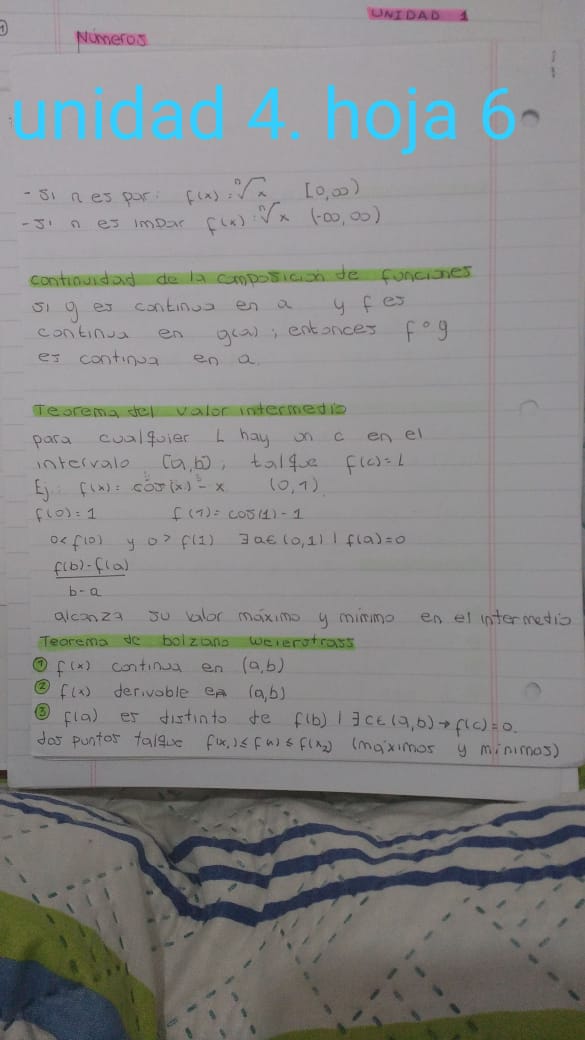 UNIDAD 1
Números
unidad 4. hoja 6
- Si n es par: f(x) = ⁿ√x [0,∞)
- Si n es impar f(x) = ⁿ√x (-∞, ∞)
continuidad de la composición de funciones
Si g es continua en a y f es
continua en g(a), entonces f∘g
es continua en a.
Teorema del valor intermedio
para cualquier L hay un c en el
intervalo [a,b), talque f(c)=L
Ej: f(x) = cos(x) - x (0,1)
f(0)=1 f(1)=cos(1)-1
0<f(0) y 0>f(1) ∃a∈(0,1) | f(a)=0
f(b)-f(a)
b-a
alcanza su valor máximo y mínimo en el intermedio
Teorema de bolzano weierstrass
① f(x) continua en (a,b)
② f(x) derivable en (a,b)
③ f(a) es distinto de f(b) | ∃c∈(a,b)→f(c)=0.
dos puntos talque f(x₁)≤f(x)≤f(x₂) (máximos y mínimos)